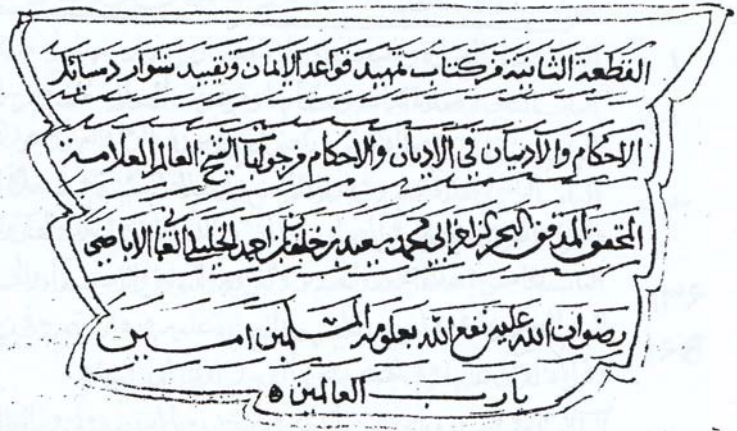 القطعة الثانية من كتاب تمهيد قواعد الايمان وتقييد شوارد مسائل
الاحكام والاديان في الاديان والاحكام من جوابات الشيخ العالم العلامة
المحقق المدقق البحر الزاخر ابي محمد سعيد بن خلفان بن احمد الخليلي الاباضي
رضوان الله عليه نفع الله بعلومه المسلمين امين
يا رب العالمين